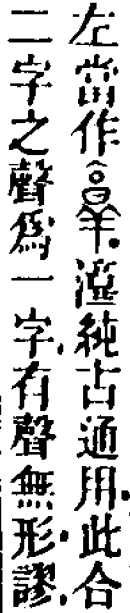 左當作𦎫.湻純古通用.此合
二字之聲爲一字.有聲無形.謬.